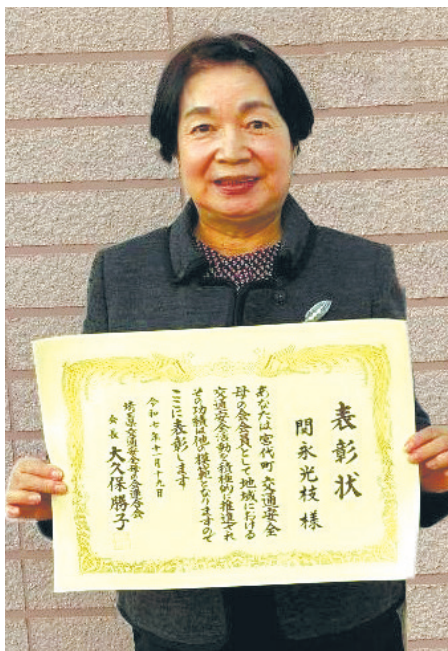 表彰状
関永光枝 様
あなたは宮代町交通安全
母の会会員として地域における
交通安全活動を積極的に推進され
その功績は他の模範となりますので
ここに表彰します
令和七年十一月十九日
埼玉県交通安全母の会連合会
会長 大久保勝子